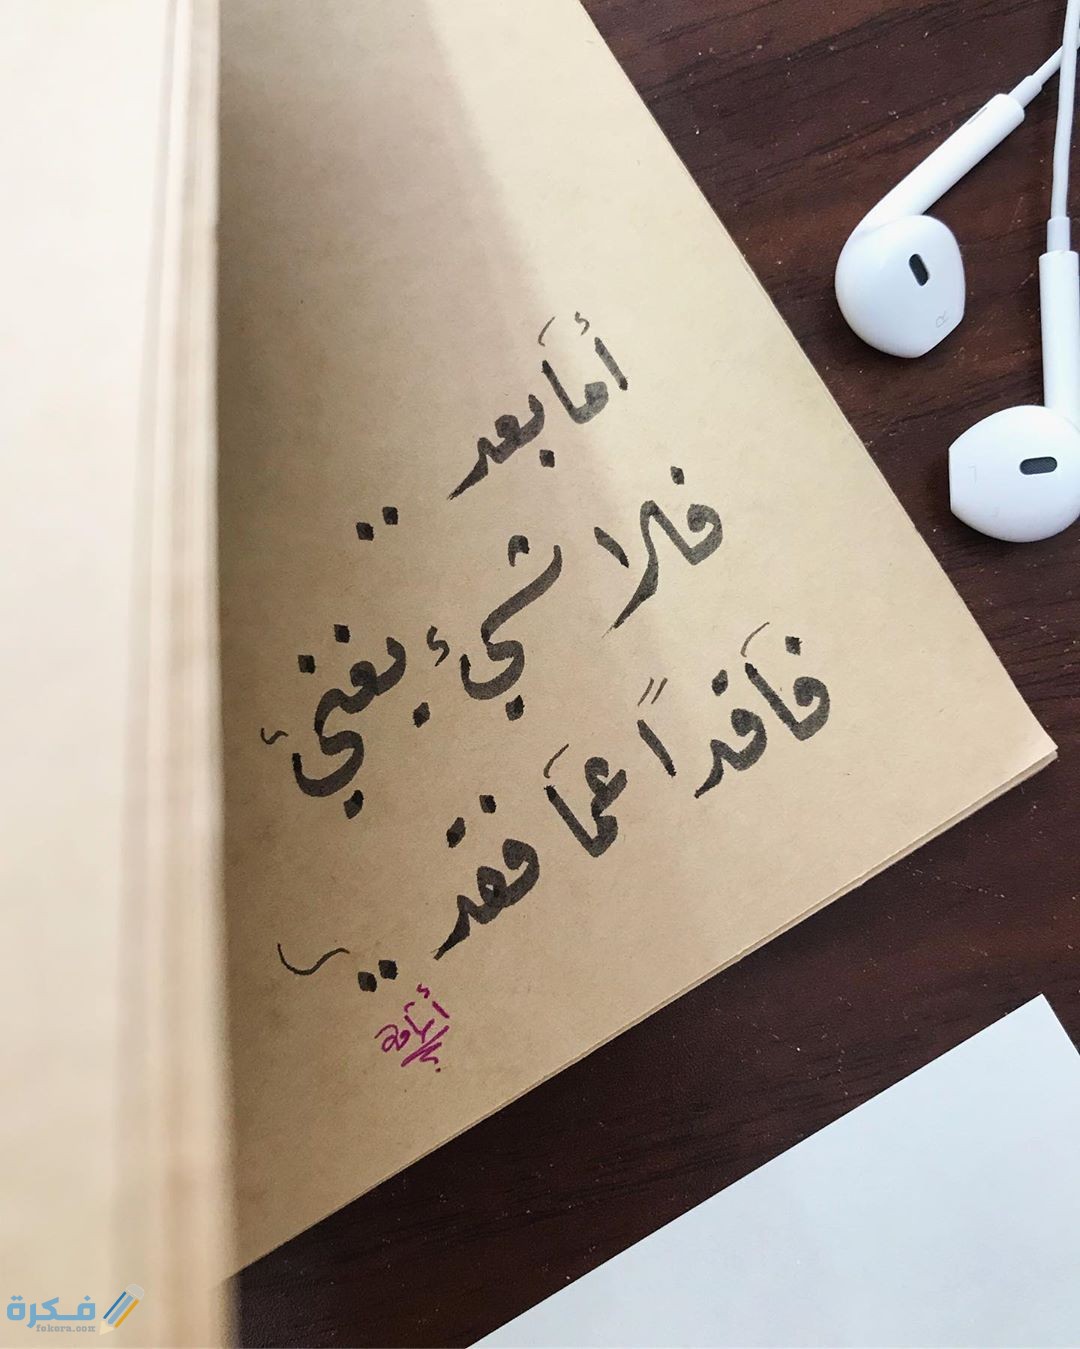 أما بعد ..
فلا شيء بغني
فاقدًا عما فقد ..
فكرة
fekera.com